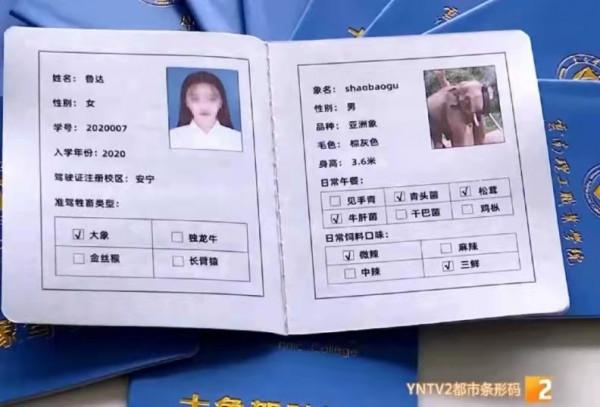 姓名：鲁达
性别：女
学号：2020007
入学年份：2020
驾驶证注册校区：安宁
准驾牲畜类型：
☑ 大象 ☐ 独龙牛
☐ 金丝猴 ☐ 长臂猿
象名：shaobaogu
性别：男
品种：亚洲象
毛色：棕灰色
身高：3.6米
日常午餐：
☐ 见手青 ☑ 青头菌 ☑ 松茸
☑ 牛肝菌 ☐ 干巴菌 ☐ 鸡枞
日常饲料口味：
☑ 微辣 ☐ 麻辣
☐ 中辣 ☑ 三鲜
College
YNTV2都市条形码 2